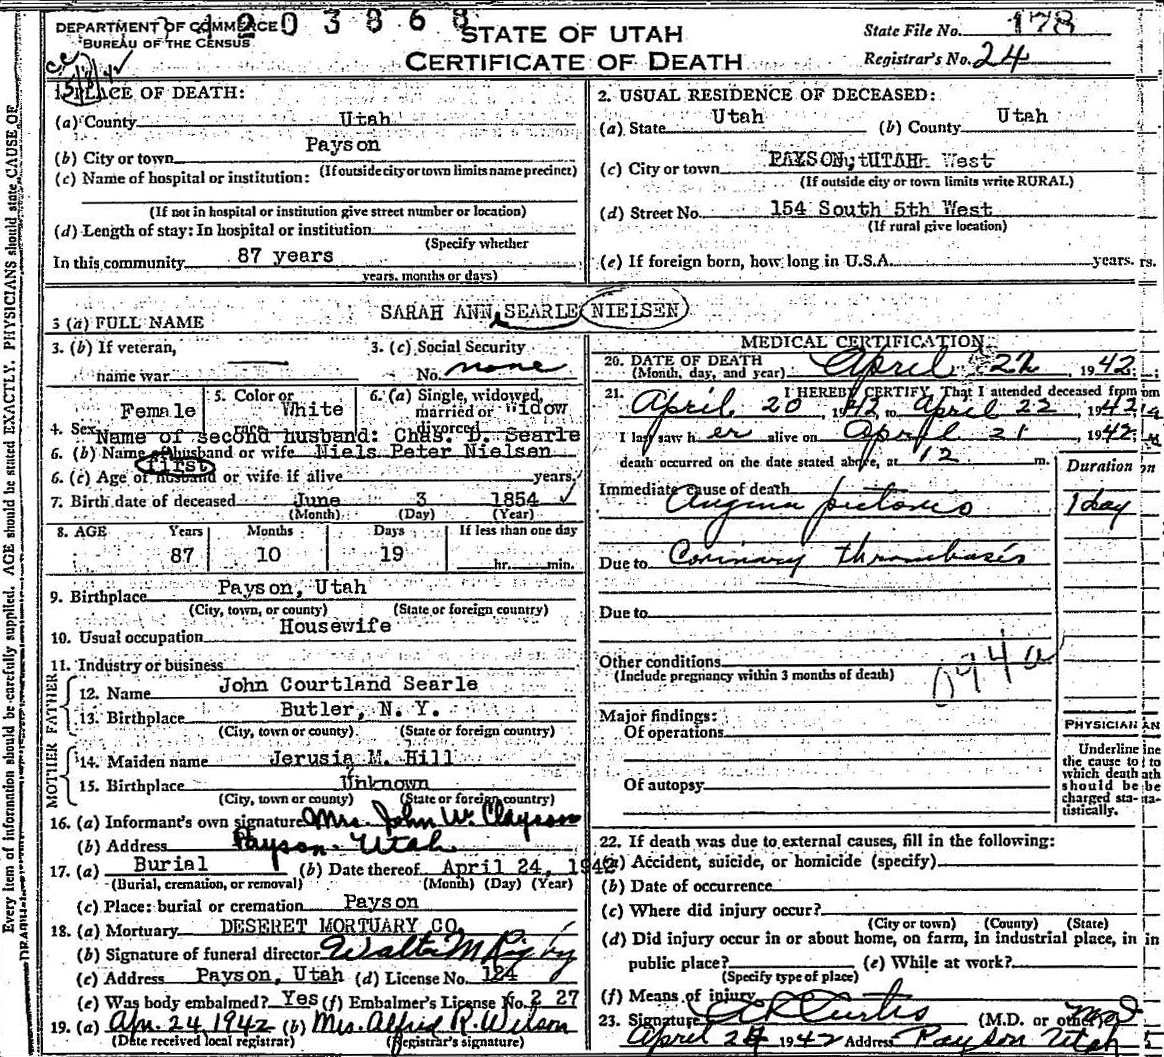 DEPARTMENT OF COMMERCE
BUREAU OF THE CENSUS
203868
STATE OF UTAH
CERTIFICATE OF DEATH
State File No. 178
Registrar's No. 24
5/8/42
1. PLACE OF DEATH:
(a) County Utah
(b) City or town Payson
(If outside city or town limits name precinct)
(c) Name of hospital or institution:
(If not in hospital or institution give street number or location)
(d) Length of stay: In hospital or institution
(Specify whether
In this community 87 years
years, months or days)
2. USUAL RESIDENCE OF DECEASED:
(a) State Utah (b) County Utah
(c) City or town PAYSON, UTAH West
(If outside city or town limits write RURAL)
(d) Street No. 154 South 5th West
(If rural give location)
(e) If foreign born, how long in U.S.A. years. rs.
3 (a) FULL NAME SARAH ANN SEARLE NIELSEN
3. (b) If veteran,
name war
3. (c) Social Security
No. none
4. Sex Female
5. Color or
race White
6. (a) Single, widowed,
married or
divorced Widow
Name of second husband: Chas. D. Searle
6. (b) Name of husband or wife Niels Peter Nielsen
first
6. (c) Age of husband or wife if alive years.
7. Birth date of deceased June 3 1854
(Month) (Day) (Year)
8. AGE Years Months Days If less than one day
87 10 19 hr. min.
9. Birthplace Payson, Utah
(City, town, or county) (State or foreign country)
10. Usual occupation Housewife
11. Industry or business
FATHER
12. Name John Courtland Searle
13. Birthplace Butler, N. Y.
(City, town or county) (State or foreign country)
MOTHER
14. Maiden name Jerusia M. Hill
15. Birthplace Unknown
(City, town or county) (State or foreign country)
16. (a) Informant's own signature Mrs John W. Clayson
(b) Address Payson Utah
17. (a) Burial (b) Date thereof April 24, 1942
(Burial, cremation, or removal) (Month) (Day) (Year)
(c) Place: burial or cremation Payson
18. (a) Mortuary DESERET MORTUARY CO
(b) Signature of funeral director Walter M Rigby
(c) Address Payson, Utah (d) License No. 124
(e) Was body embalmed? Yes (f) Embalmer's License No. 2 27
19. (a) Apr. 24, 1942 (b) Mrs. Alfred R. Wilson
(Date received local registrar) (Registrar's signature)
MEDICAL CERTIFICATION
20. DATE OF DEATH
(Month, day, and year) April 22, 1942
21. I HEREBY CERTIFY, That I attended deceased from om
April 20, 1942 to April 22, 1942
I last saw her alive on April 21, 1942
death occurred on the date stated above, at 12 m.
Duration on
Immediate cause of death
Angina pictoris 1 day
Due to Corinary thrombasis
Due to
Other conditions
(Include pregnancy within 3 months of death)
094a
Major findings:
Of operations
Of autopsy
PHYSICIAN AN
Underline ine
the cause to to
which death ath
should be be
charged sta- ta-
tistically.
22. If death was due to external causes, fill in the following:
(a) Accident, suicide, or homicide (specify)
(b) Date of occurrence
(c) Where did injury occur?
(City or town) (County) (State)
(d) Did injury occur in or about home, on farm, in industrial place, in in
public place? (e) While at work?
(Specify type of place)
(f) Means of injury
23. Signature Curtis (M.D. or other)
April 24 1942 Address Payson Utah
Every item of information should be carefully supplied. AGE should be stated EXACTLY. PHYSICIANS should state CAUSE OF